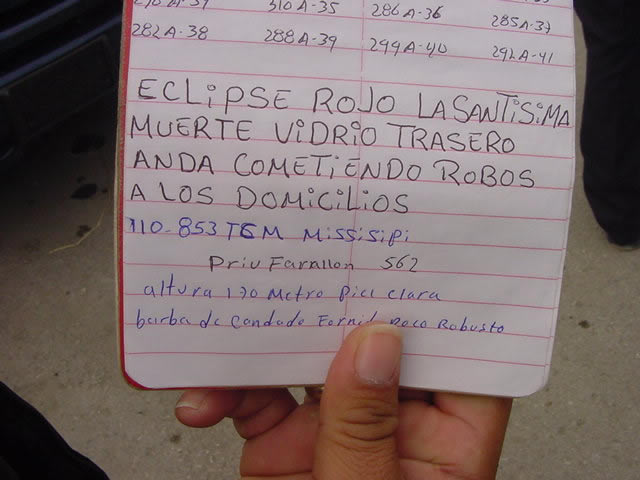 310A-35 286A-36 285A-37
282A-38 288A-39 299A-40 292A-41
ECLiPSE ROJO LA SANTiSiMA
MUERTE ViDRiO TRASERO
ANDA COMETiENDO ROBOS
A LOS DOMiCiLiOS
110-853 TGM Missisipi
Priv Farallon 562
altura 170 Metro Piel Clara
barba de Candado Fornid Poco Robusto